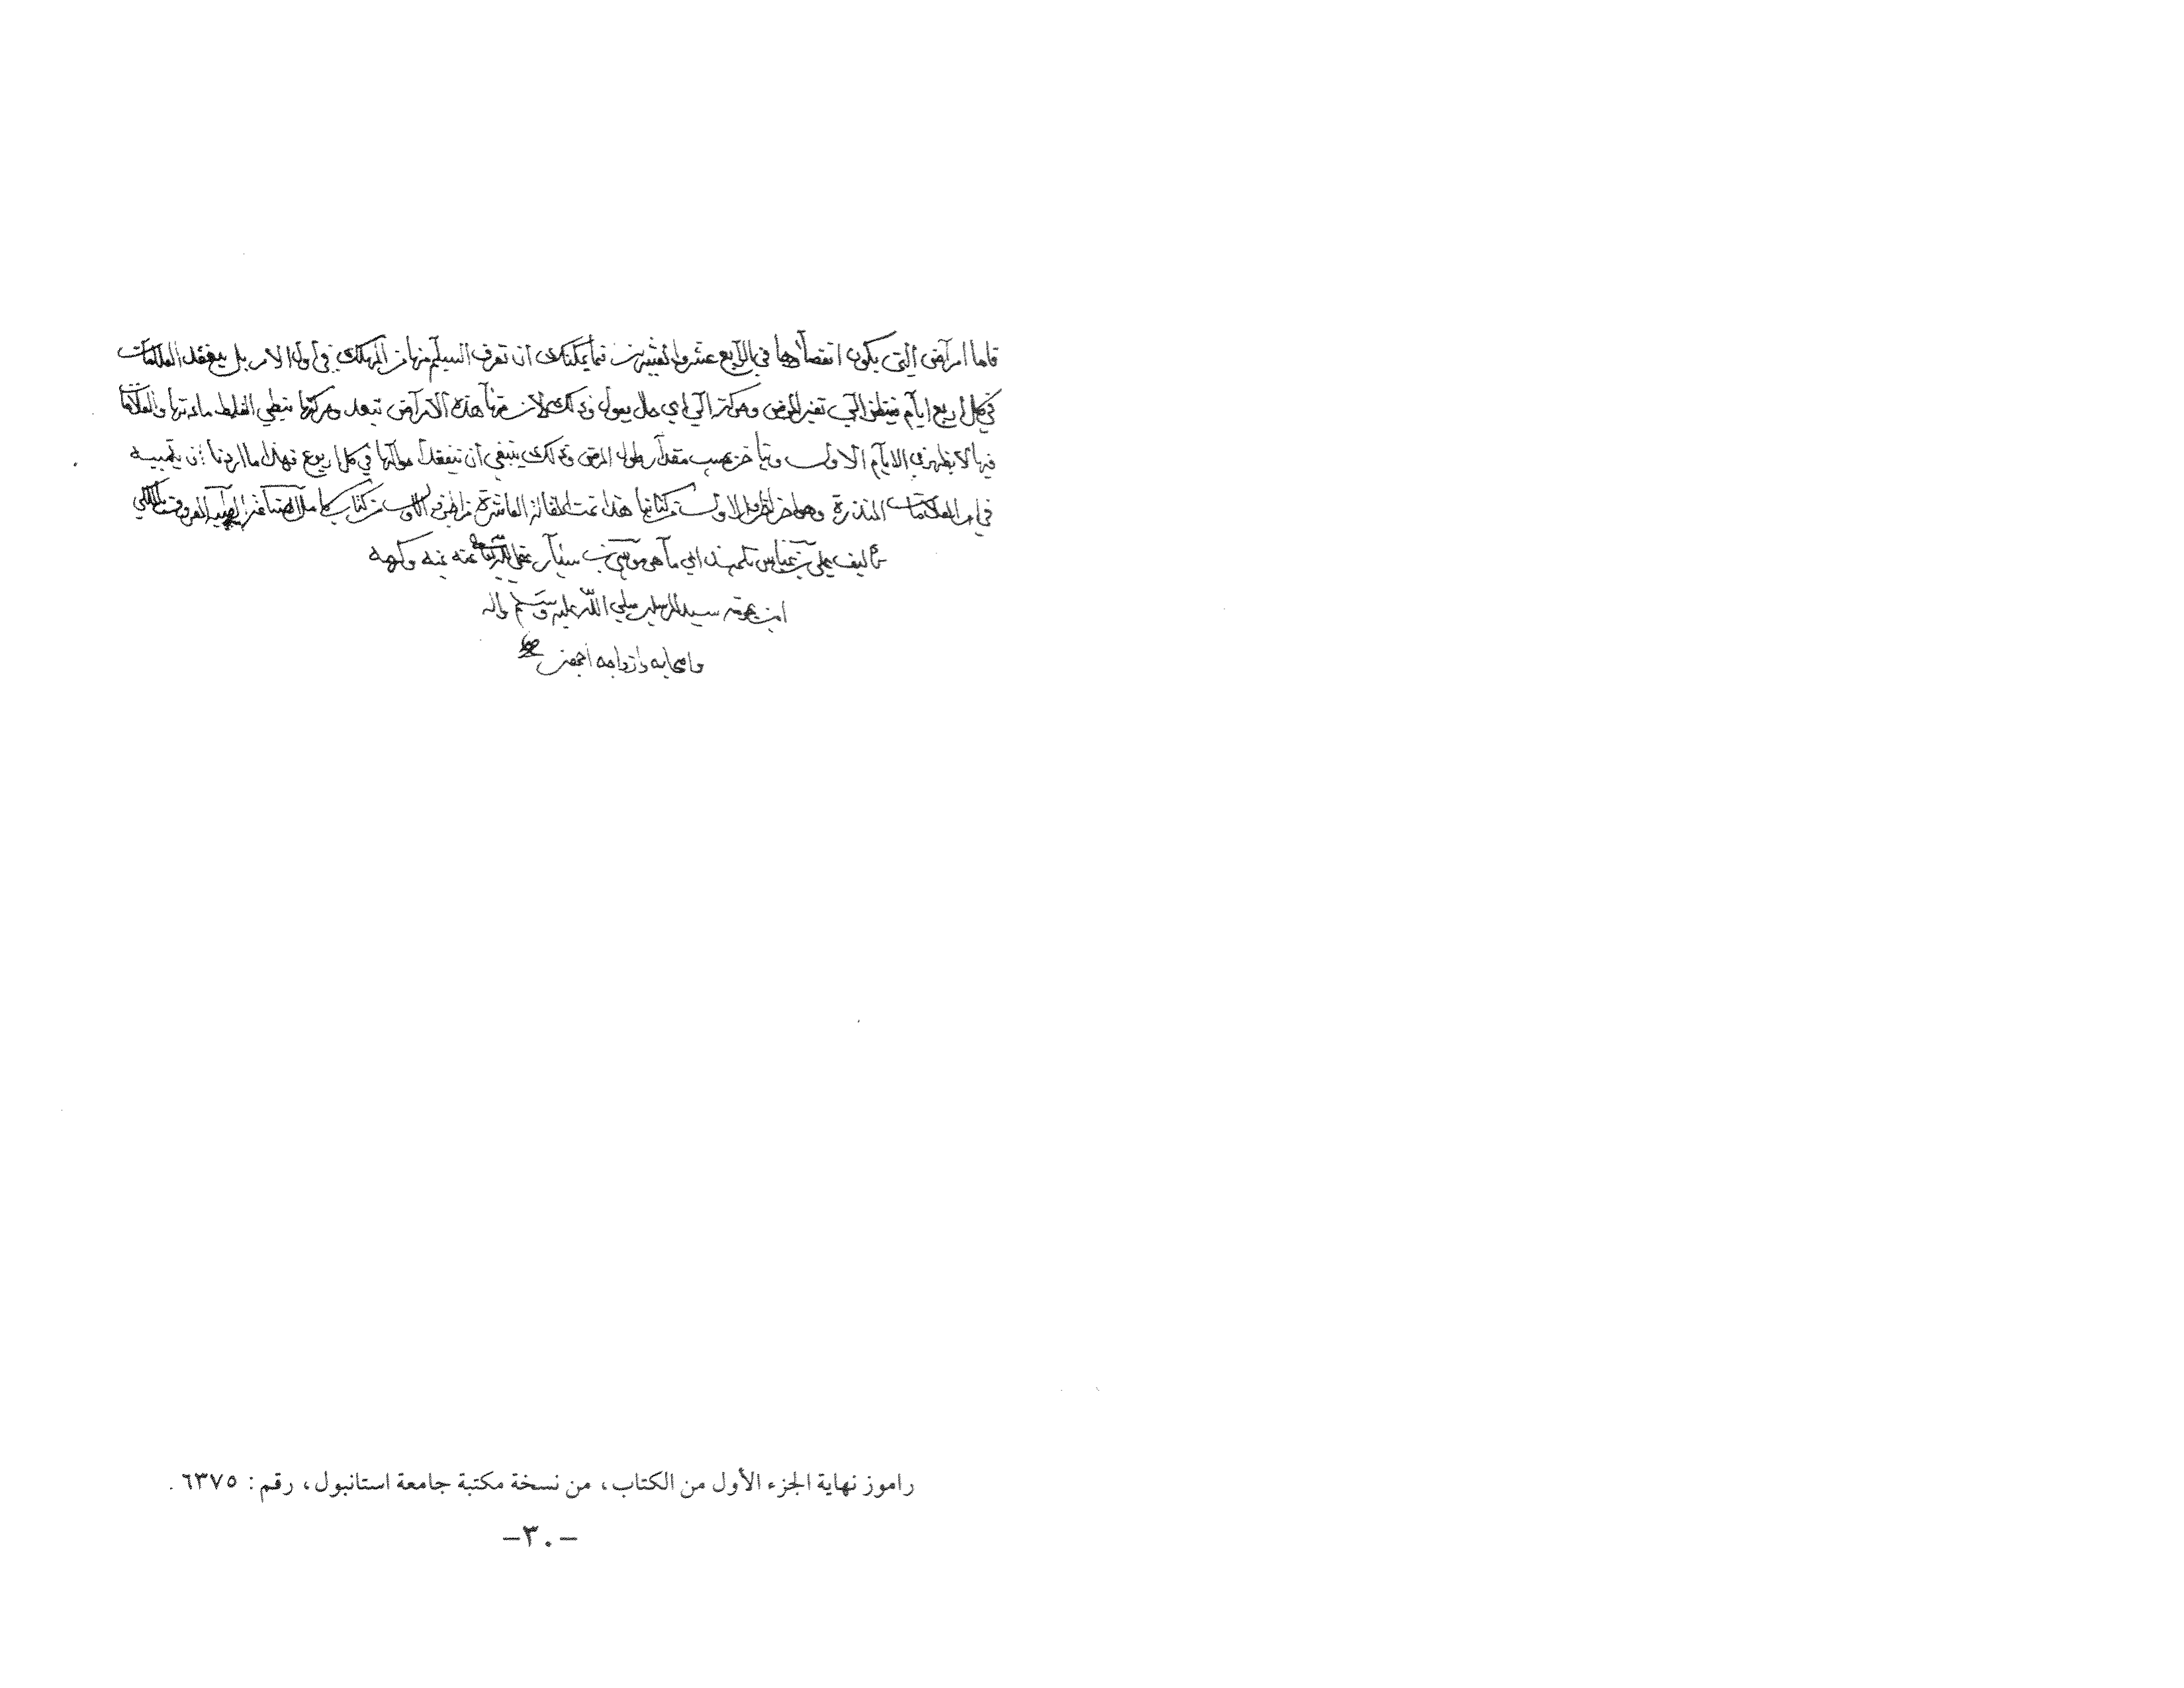 فاما امراض التي يكون انقضاؤها في الرابع عشر والعشرين فما يمكنك ان تعرف السليم منها من المهلك في اول الامر بل يتفقد العلامات
في كل اربع ايام فينظر التي تغير المرض وحركته الي اي حال يوول وذلك لان منها هذه الامراض تبعد وحركتها تبطي لغلظ مادتها والعلامات
فيها لا يظهر في الايام الاول ويتاخر بحسب مقدار طول المرض وكذلك ينبغي ان تتفقد احوالها في كل اربوع فهذا ما اردنا ان
في امر العلامات المنذرة وهو اخر الجزو الاول من كتابنا هذا تمت المقالة العاشرة من الجزو الاول من كتاب كامل الصناعة الطبية المعروف بالملكي
تاليف علي بن عباس تلميذ ابي ماهر موسي بن سيار بمنه وكرمه
امين بحرمة سيد المرسلين صلي الله عليه وسلم واله
واصحابه وازواجه اجمعين
راموز نهاية الجزء الأول من الكتاب، من نسخة مكتبة جامعة استانبول، رقم: ٦٣٧٥ .
–٣٠–